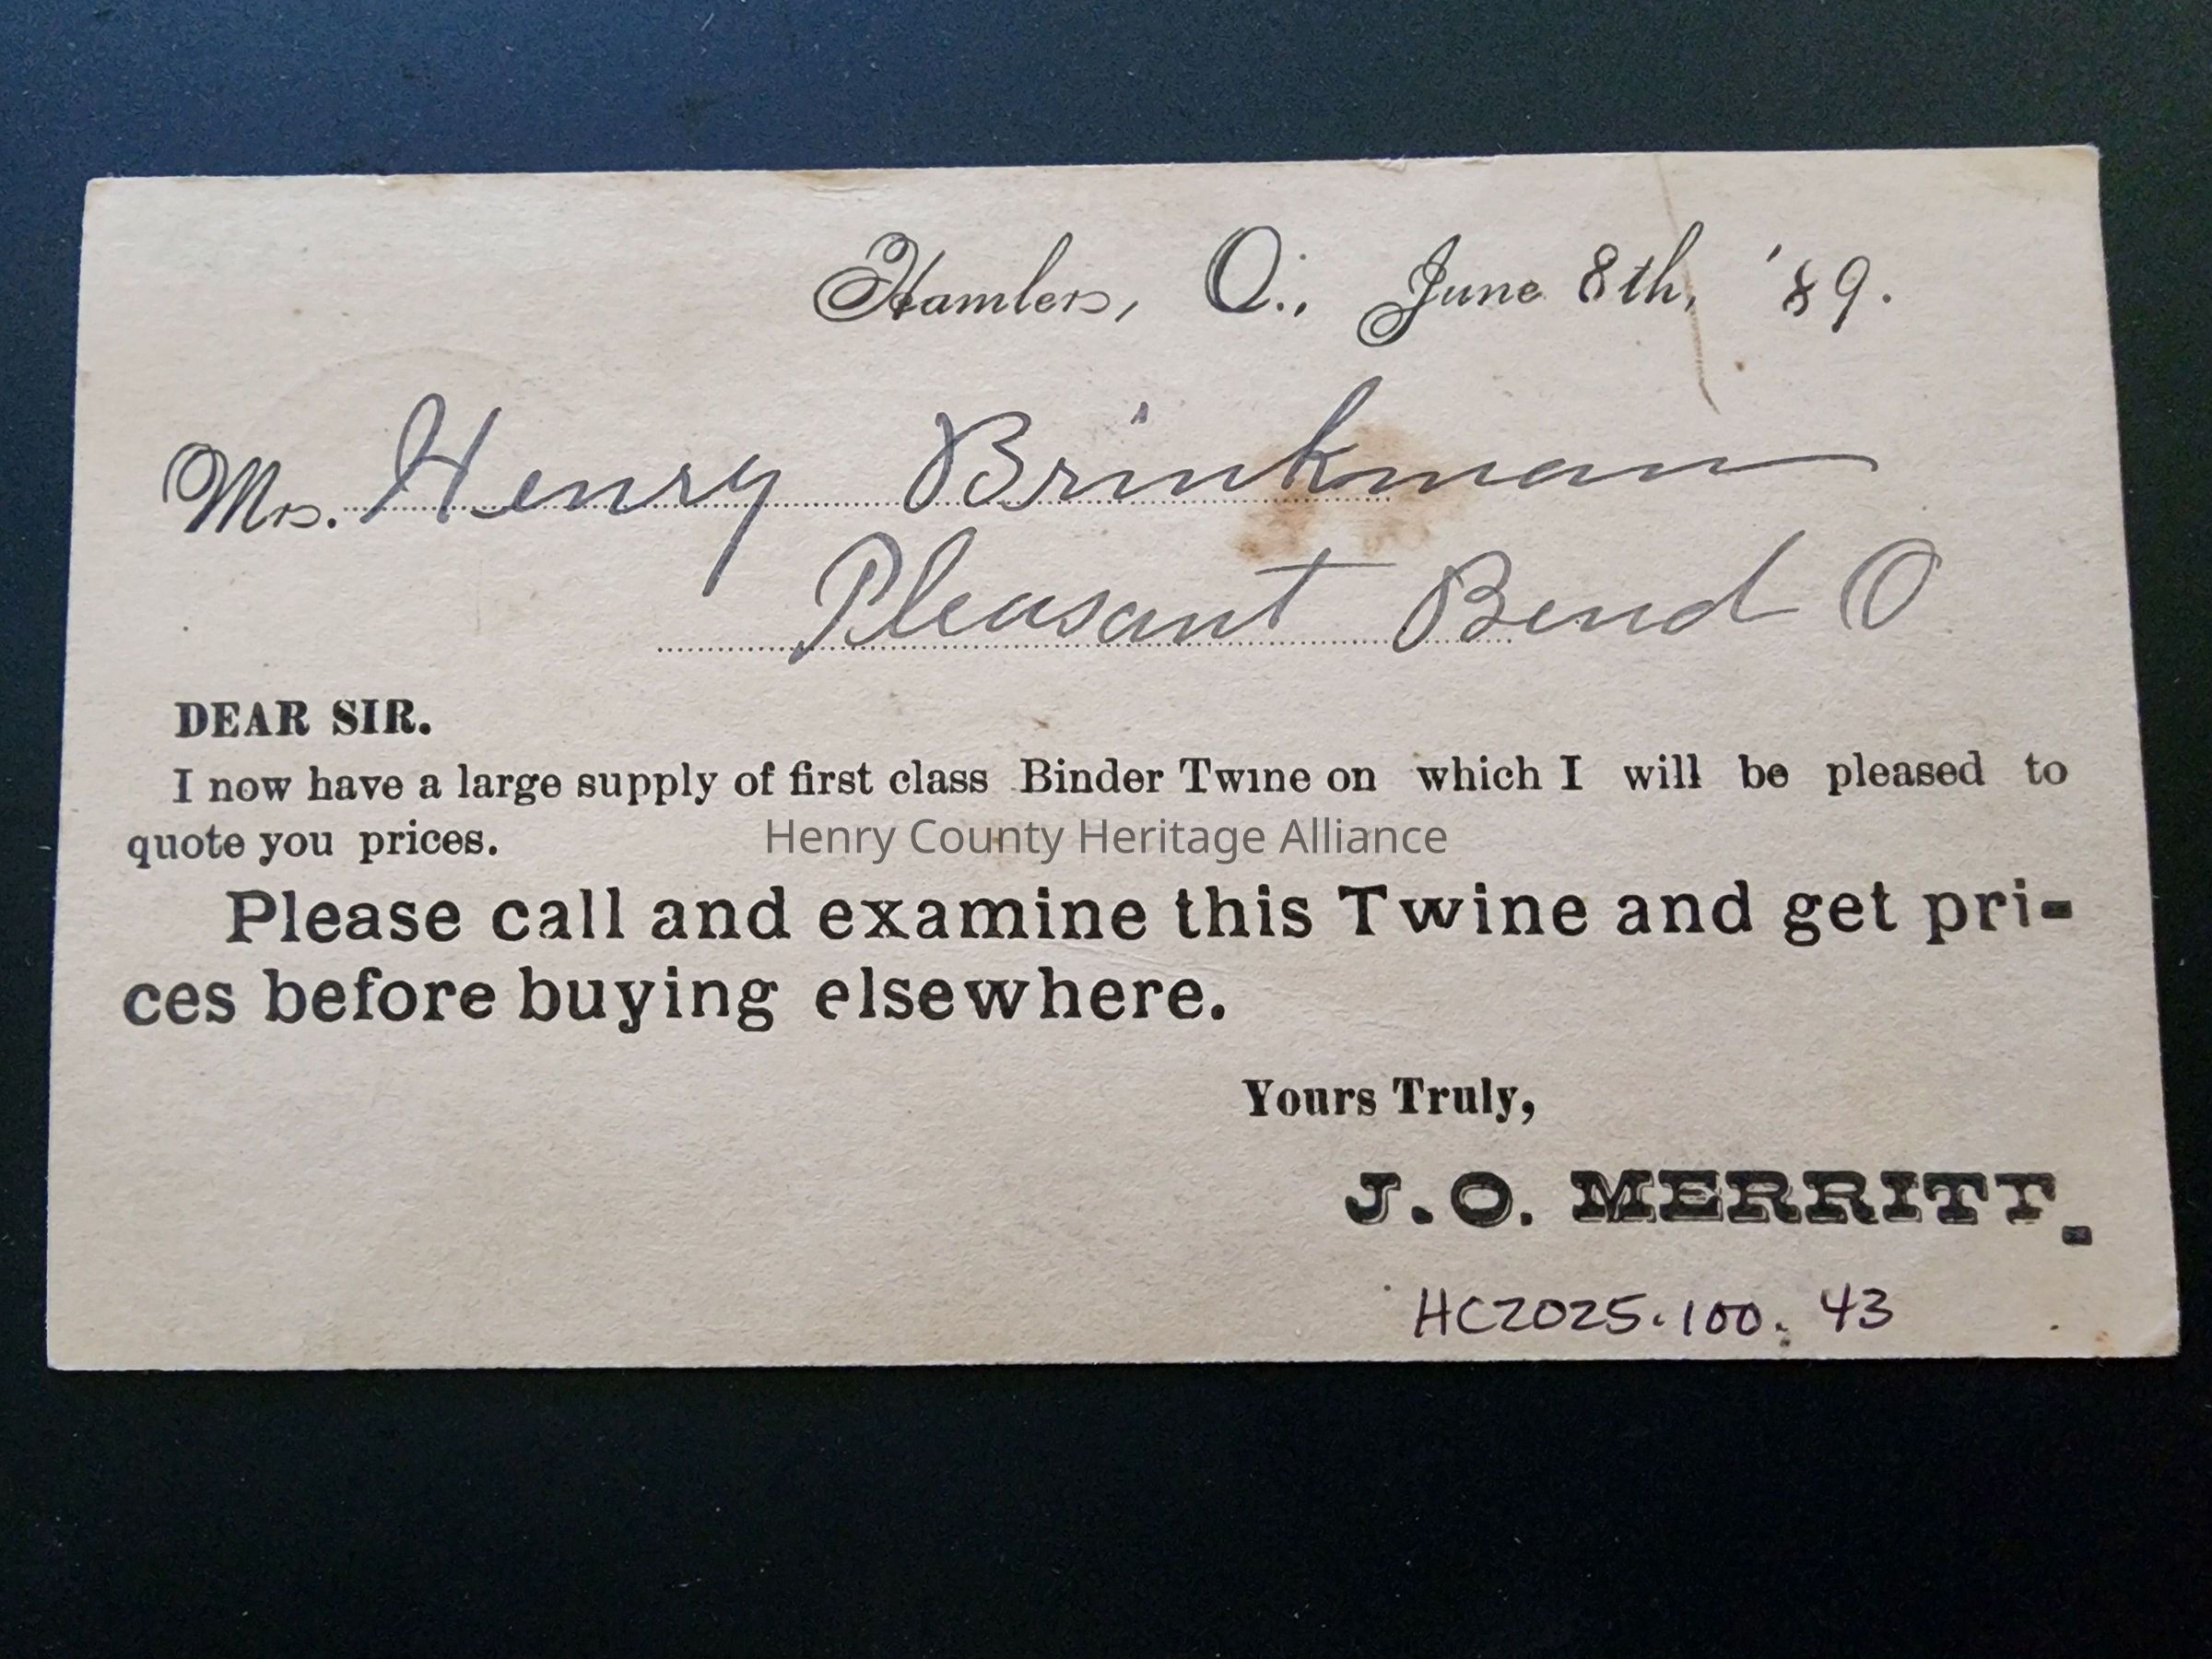 Hamler, O., June 8th, '89.
Mr. Henry Brinkman
Pleasant Bend O
DEAR SIR.
I now have a large supply of first class Binder Twine on which I will be pleased to
quote you prices.
Henry County Heritage Alliance
Please call and examine this Twine and get pri-
ces before buying elsewhere.
Yours Truly,
J. O. MERRITT.
HC2025.100.43